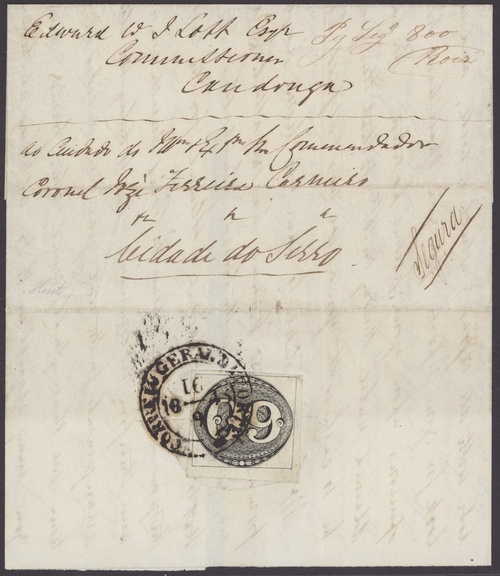 Edward W J Lott Esqr
Commissioner
Candonga
Pg Seg 800
Reis
ao Cuidado do Illmo Exmo Snr Commendador
Coronel Jozè Ferreira Carneiro
Cidade do Serro
Segura
CORREIO GERAL DA CORTE
16
1849
60